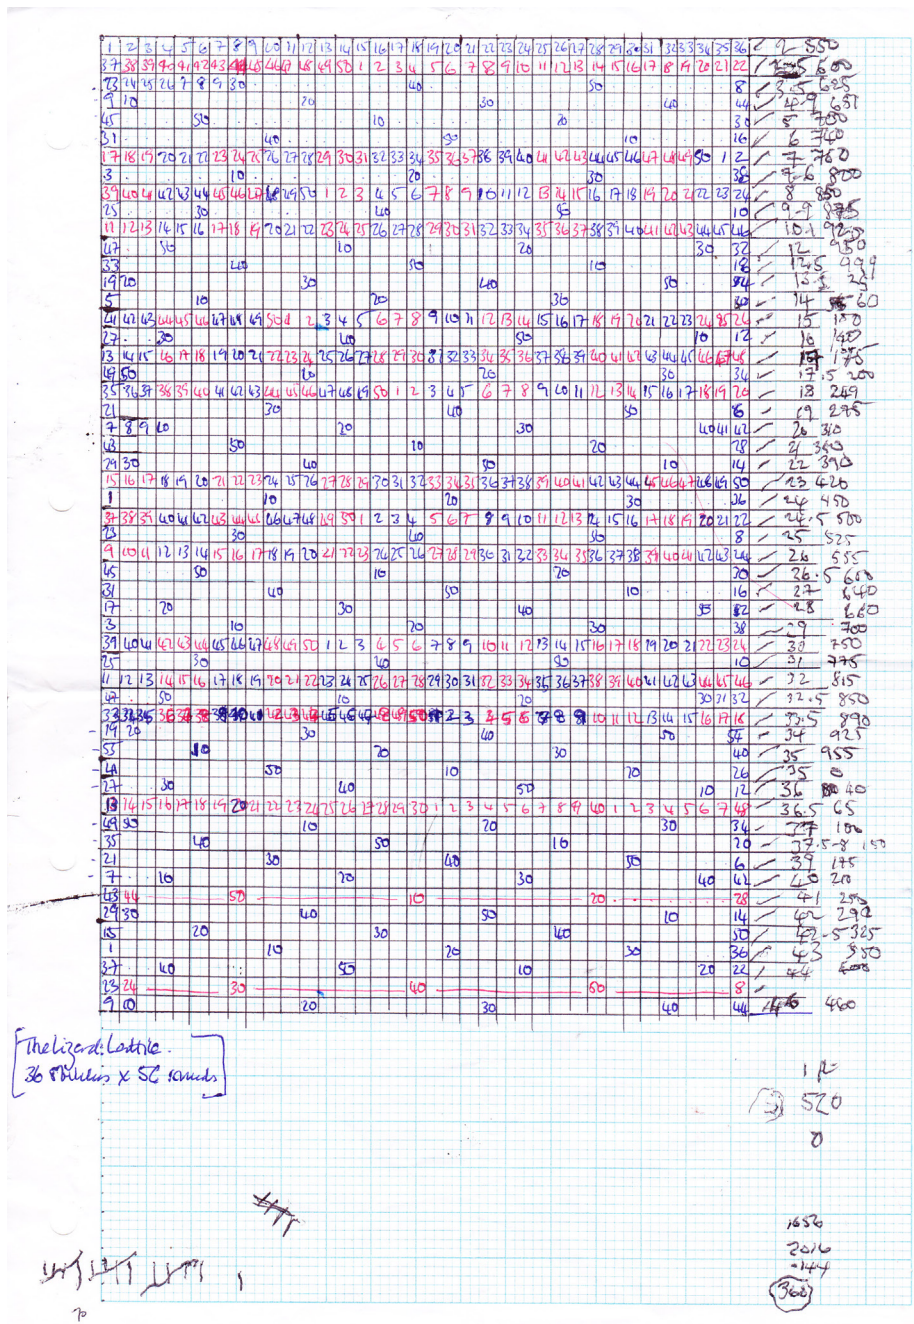 1 2 3 4 5 6 7 8 9 10 11 12 13 14 15 16 17 18 19 20 21 22 23 24 25 26 27 28 29 30 31 32 33 34 35 36 2 550
37 38 39 40 41 42 43 44 45 46 47 48 49 50 1 2 3 4 5 6 7 8 9 10 11 12 13 14 15 16 17 18 19 20 21 22 600
23 24 25 26 7 8 9 30 40 50 8 3.5 625
9 10 20 30 40 44
45 50 10 20 30 5 700
31 40 50 10 16 6 740
17 18 19 20 21 22 23 24 25 26 27 28 29 30 31 32 33 34 35 36 37 38 39 40 41 42 43 44 45 46 47 48 49 50 1 2 7 760
3 10 20 30 38 800
39 40 41 42 43 44 45 46 47 48 49 50 1 2 3 4 5 6 7 8 9 10 11 12 13 14 15 16 17 18 19 20 21 22 23 24 8 850
25 30 40 50 10 875
11 12 13 14 15 16 17 18 19 20 21 22 23 24 25 26 27 28 29 30 31 32 33 34 35 36 37 38 39 40 41 42 43 44 45 46
47 50 10 20 30 32 12 950
33 40 50 10 18 12.5 999
19 20 30 40 50
5 10 20 30 14 60
41 42 43 44 45 46 47 48 49 50 1 2 3 4 5 6 7 8 9 10 11 12 13 14 15 16 17 18 19 20 21 22 23 24 25 26 15 100
27 30 40 50 10 12 16
13 14 15 16 17 18 19 20 21 22 23 24 25 26 27 28 29 30 31 32 33 34 35 36 37 38 39 40 41 42 43 44 45 46 47 48 175
49 50 10 20 30 34 17.5 200
35 36 37 38 39 40 41 42 43 44 45 46 47 48 49 50 1 2 3 4 5 6 7 8 9 10 11 12 13 14 15 16 17 18 19 20 18 249
21 30 40 50 6 19 295
7 8 9 10 20 30 40 41 42 20 310
43 50 10 20 28 21 350
29 30 40 50 10 14 22 390
15 16 17 18 19 20 21 22 23 24 25 26 27 28 29 30 31 32 33 34 35 36 37 38 39 40 41 42 43 44 45 46 47 48 49 50 23 420
1 10 20 30 36 24 450
37 38 39 40 41 42 43 44 45 46 47 48 49 50 1 2 3 4 5 6 7 8 9 10 11 12 13 14 15 16 17 18 19 20 21 22 24.5 500
23 30 40 50 8 25 525
9 10 11 12 13 14 15 16 17 18 19 20 21 22 23 24 25 26 27 28 29 30 31 32 33 34 35 36 37 38 39 40 41 42 43 44 26 555
45 50 10 20 30 26.5 600
31 40 50 10 16 27 640
17 20 30 40 50 28 660
3 10 20 30 38 29 700
39 40 41 42 43 44 45 46 47 48 49 50 1 2 3 4 5 6 7 8 9 10 11 12 13 14 15 16 17 18 19 20 21 22 23 24 30 750
25 30 40 50 10 31 775
11 12 13 14 15 16 17 18 19 20 21 22 23 24 25 26 27 28 29 30 31 32 33 34 35 36 37 38 39 40 41 42 43 44 45 46 32 815
47 50 10 20 30 31 32 32.5 850
8 9 10 11 12 13 14 15 16 17 18 33.5 890
19 20 30 40 50 54 34 925
55 10 20 30 40 35 955
50 10 20 26 35 0
27 30 40 50 10 12 36 40
13 14 15 16 17 18 19 20 21 22 23 24 25 26 27 28 29 30 1 2 3 4 5 6 7 8 9 40 1 2 3 4 5 6 7 48 36.5 65
49 50 10 20 30 34 37 100
35 40 50 10 20 37.5-8 150
21 30 40 50 6 39 175
7 10 20 30 40 42 40 210
43 44 50 10 20 28 41 250
29 30 40 50 10 14 42 290
15 20 30 40 50 42-5 325
1 10 20 30 36 43 350
37 40 50 10 20 22 44 400
23 24 30 40 50 8
9 10 20 30 40 44 460
The Lizard: Lattice.
36 x 56 rounds
520
0
1656
2016
-144
360